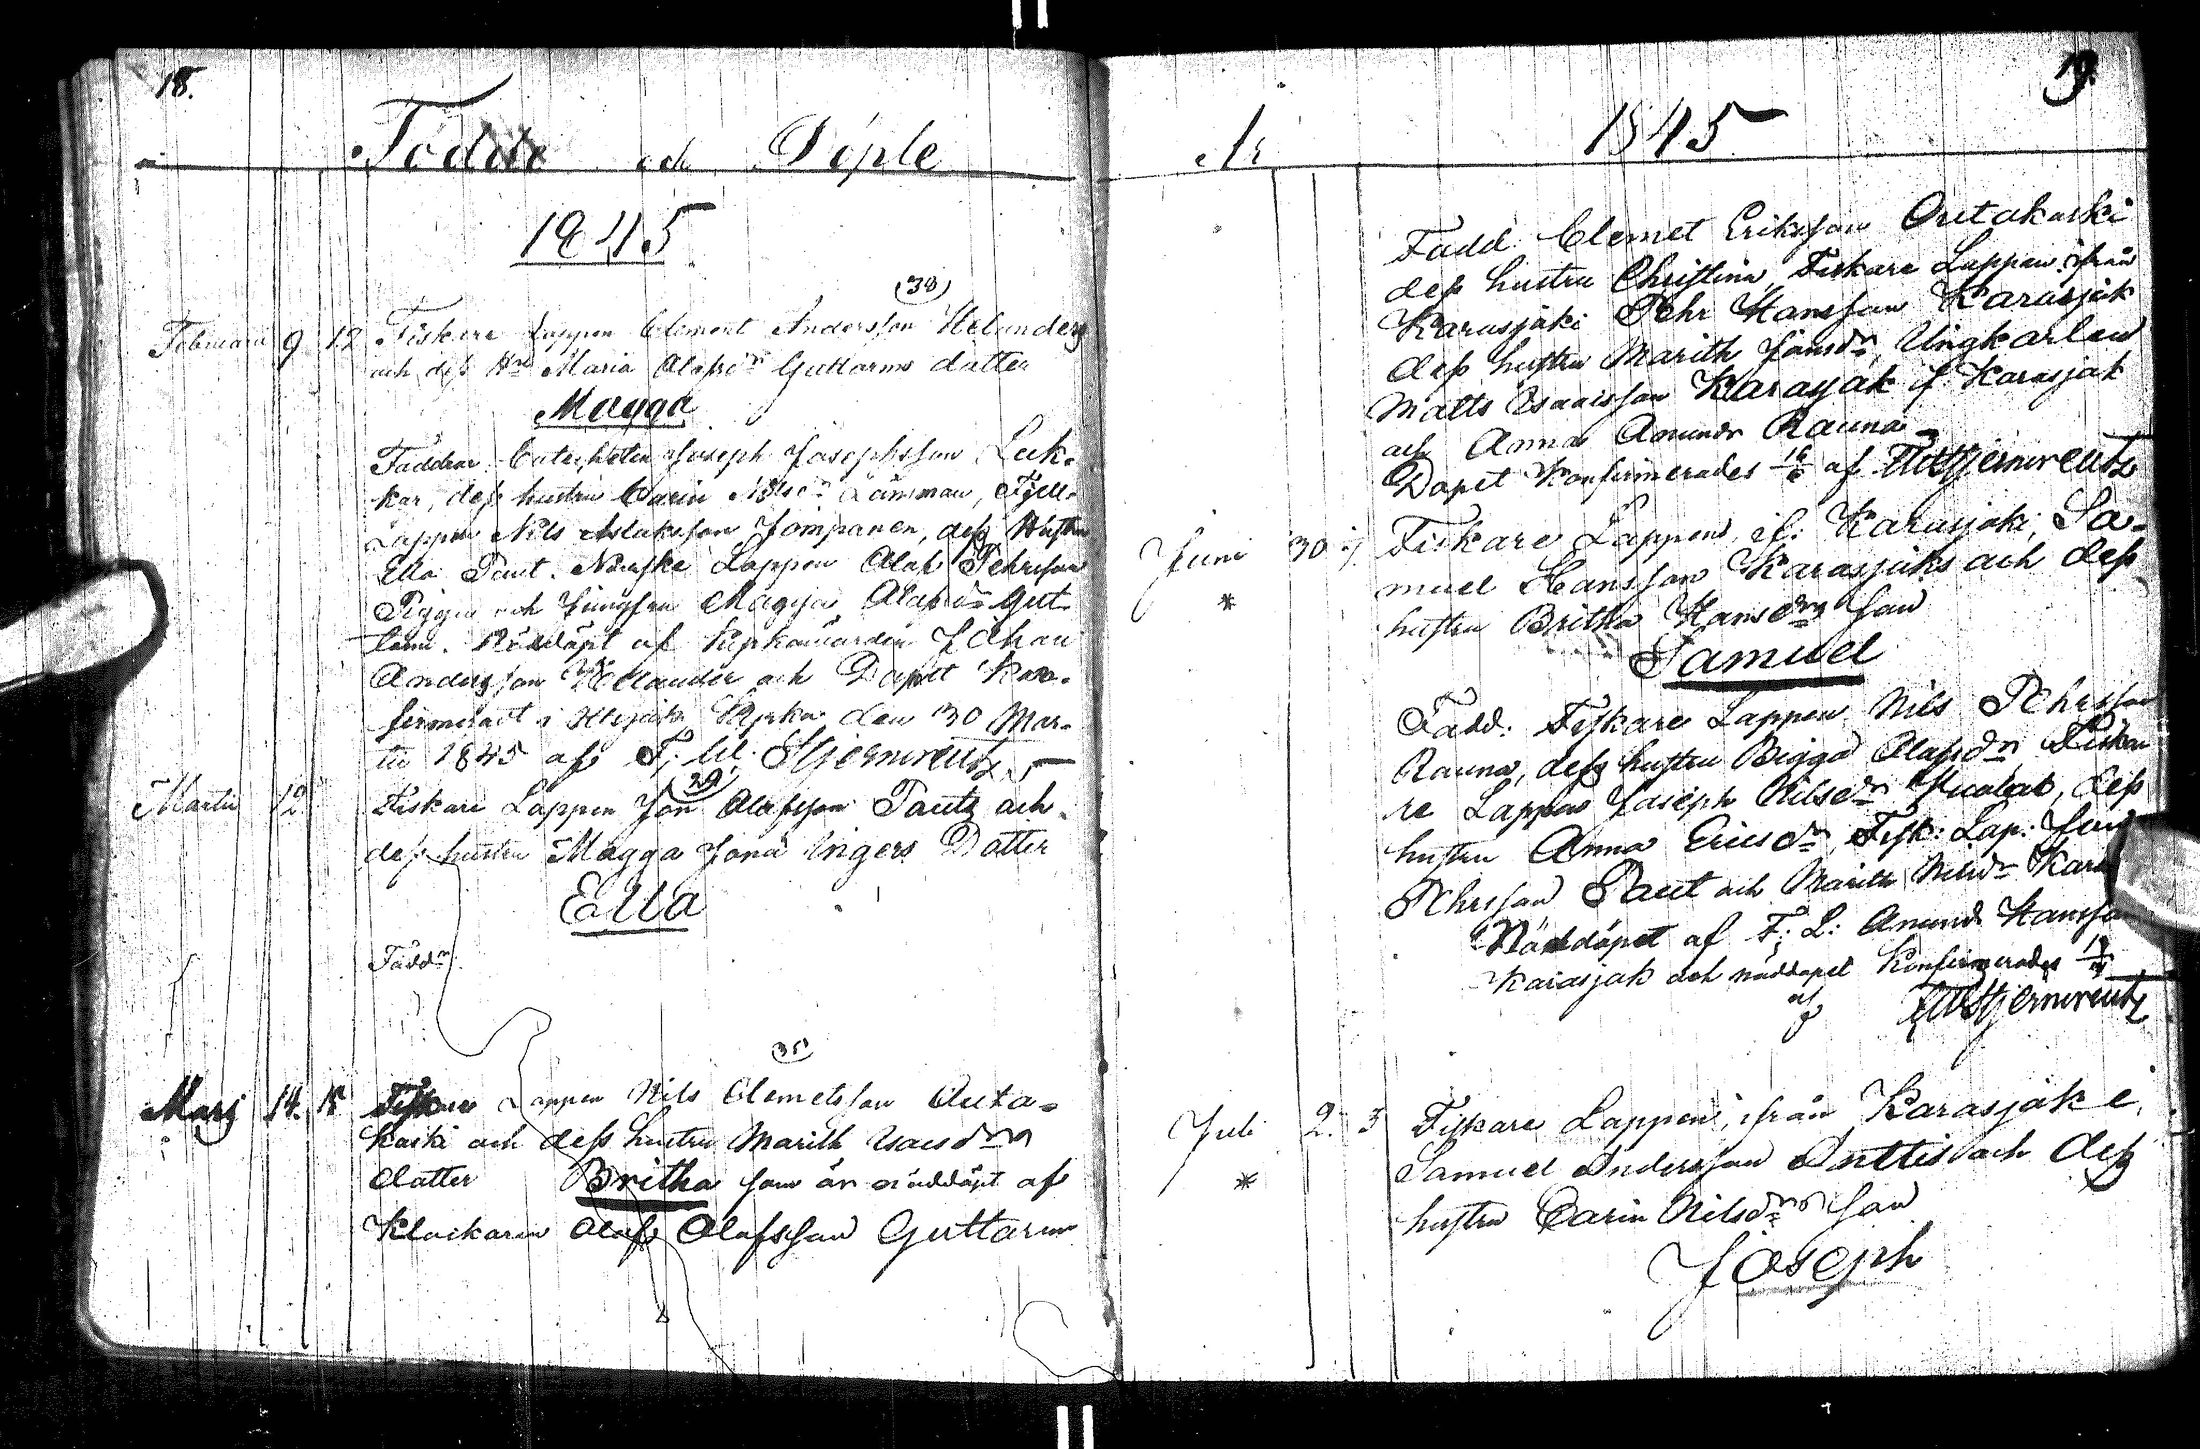 18.
Födde och Döple
1845
(38)
Februari 9 12 Fiskare Lappen Clement Andersson Helander
och dess Hu Maria Olafsdn Guttorms dotter
Magga
Faddrar Catecheten Joseph Josephsson Luk-
kar, dess hustru Carin Nilsdn Länsman, Fjell-
Lappen Nils Aslaksson Jomppanen, dess Hustru
Ella Paut. Norske Lappen Olaf Pehrsson
Pigga och Jungfru Magga Olafsdn Gut-
torm. Nöddöpt af Kyrkovärden Johan
Andersson Helander och Dopet Kon-
firmerat i Utsjoki Kyrka den 30 Mar-
tii 1845 af F. W. Stjerncreutz
(29)
Martii 12 Fiskare Lappen Jon Olofsson Pautz och
dess hustru Magga Jona Ingers Dotter
Ella
Faddr
(35)
Marsj 14. 15 Fiskare Lappen Nils Clemetsson Outa-
koski och dess hustru Marith Isacsdrs
dotter Britha som är nöddöpt af
Klockaren Olof Olofsson Guttorm
19.
År 1845
Fadd. Clemet Eriksson Outakoski
dess hustru Christina, Fiskare Lappen ifrån
Karasjoki Pehr Hansson Karasjok
dess hustru Marith Jonsdr, Ungkarlen
Matts Isaacsson Karasjok if. Karasjok
och Anna Amunds Rauna
Dopet Konfirmerades 16/6 af FWStjerncreutz
Juni 30 Fiskare Lappens, if: Karasjoki, Sa-
muel Hansson Karasjoks och dess
* hustru Britha Hansdrs son
Samuel
Fadd: Fiskare Lappen Nils Pehrsson
Rauna, dess hustru Bigga Olofsdr, Fiska-
re Lappen Joseph Nilsdn, dess
hustru Anna Ericsdr, Fisk: Lap: Juni
Pehrsson Paut och Marith Nilsdr Kara
Nöddöpet af F: L: Amund Hansson
Karasjok och nöddopet Konfirmerades
af FWStjerncreutz
Juli 2. 3 Fiskare Lappens, ifrån Karasjoki,
Samuel Anderssons Anttis och dess
* hustru Carin Nilsdrs son
Joseph